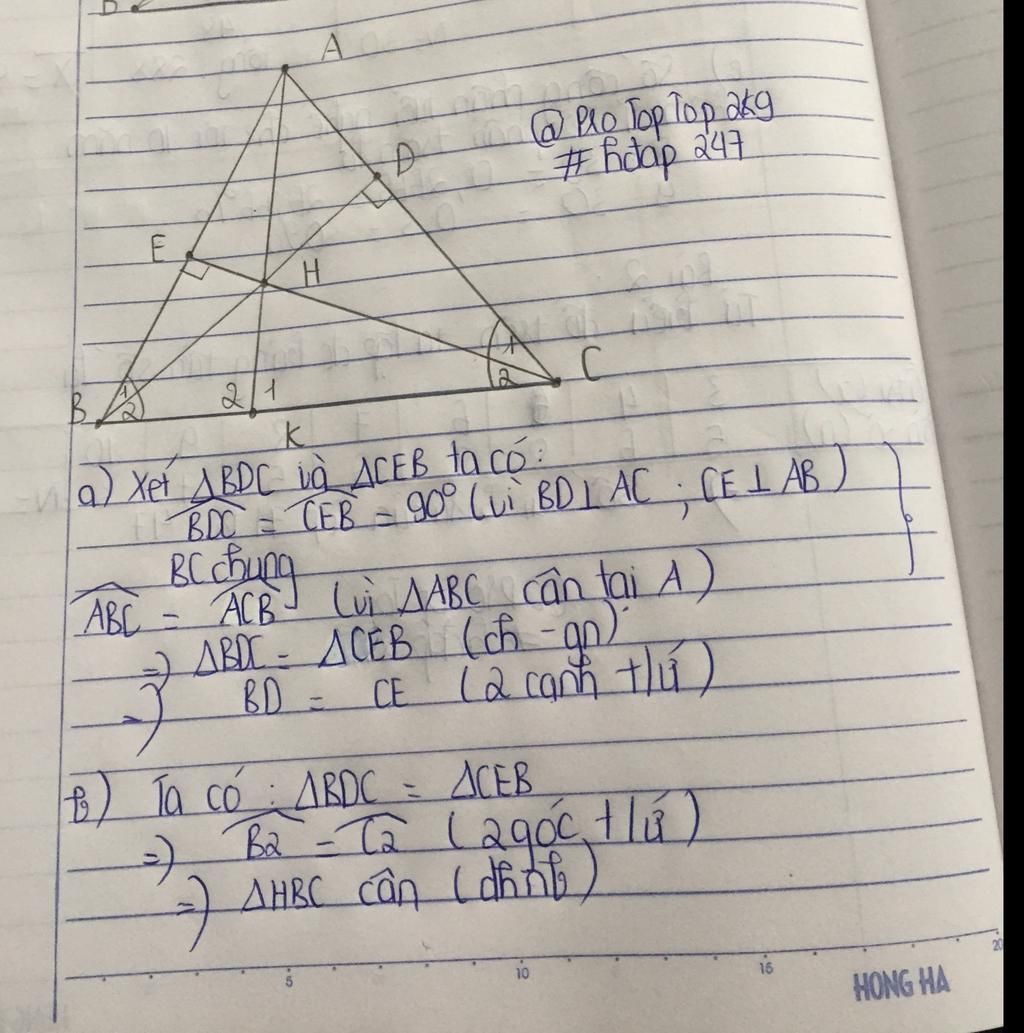 A
@ Pro Top Top 2k9
# hdap 247
D
E
H
1
C
1
2
1
2
2 1
B
K
a) Xét ΔBDC và ΔCEB ta có:
BDC = CEB = 90° (vì BD ⊥ AC ; CE ⊥ AB)
BC chung
ABC = ACB (vì ΔABC cân tại A)
=> ΔBDC = ΔCEB (ch - gn)
=> BD = CE (2 cạnh t/ứ)
b) Ta có : ΔBDC = ΔCEB
=> B2 = C2 (2 góc t/ứ)
=> ΔHBC cân (dhnb)
5 10 15 20
HONG HA